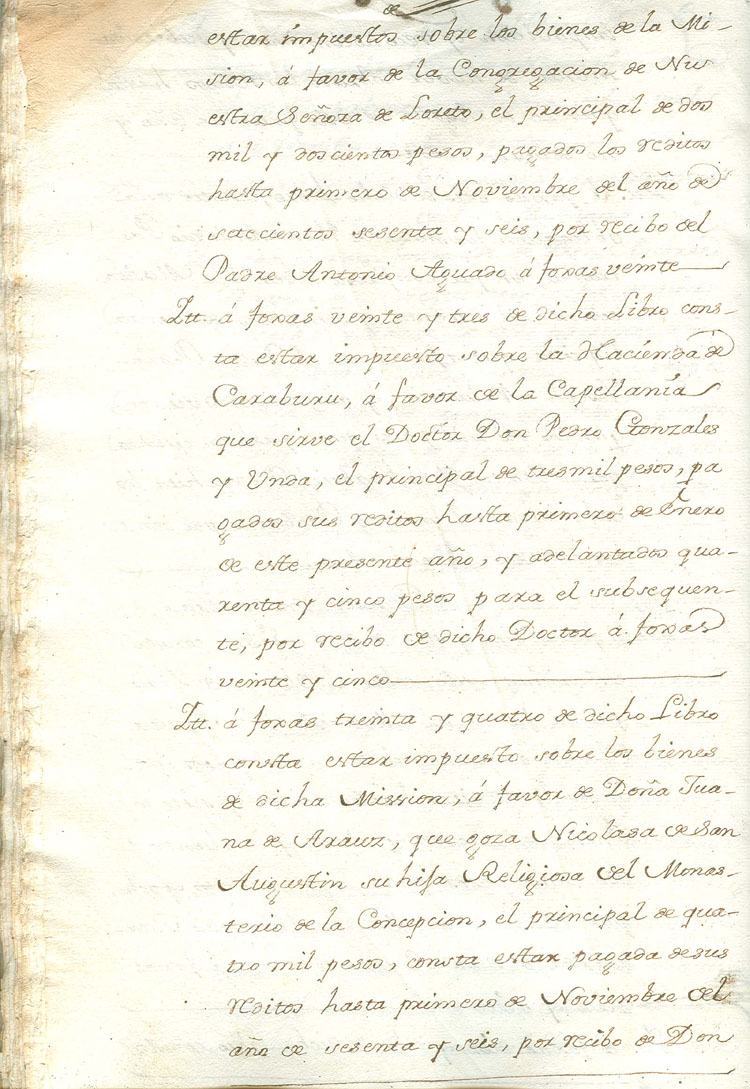 de
estar impuestos sobre los bienes de la Mi-
sion, á favor de la Congregacion de Nu
estra Señora de Loreto, el principal de dos
mil y doscientos pesos, pagados los reditos
hasta primero de Noviembre del año de
setecientos sesenta y seis, por recibo del
Padre Antonio Aguado á foxas veinte
Itt. á foxas veinte y tres de dicho Libro cons-
ta estar impuesto sobre la Hacienda de
Caraburu, á favor de la Capellanía
que sirve el Doctor Don Pedro Gonzales
y Unda, el principal de tres mil pesos, pa
gados sus reditos hasta primero de Enero
de este presente año, y adelantados qua-
renta y cinco pesos para el subsequen-
te, por recibo de dicho Doctor á foxas
veinte y cinco
Itt. á foxas treinta y quatro de dicho Libro
consta estar impuesto sobre los bienes
de dicha Mission, á favor de Doña Jua-
na de Arauz, que goza Nicolasa de San
Augustin su hija Religiosa del Monas-
terio de la Concepcion, el principal de qua-
tro mil pesos, consta estar pagada de sus
reditos hasta primero de Noviembre del
año de sesenta y seis, por recibo de Don